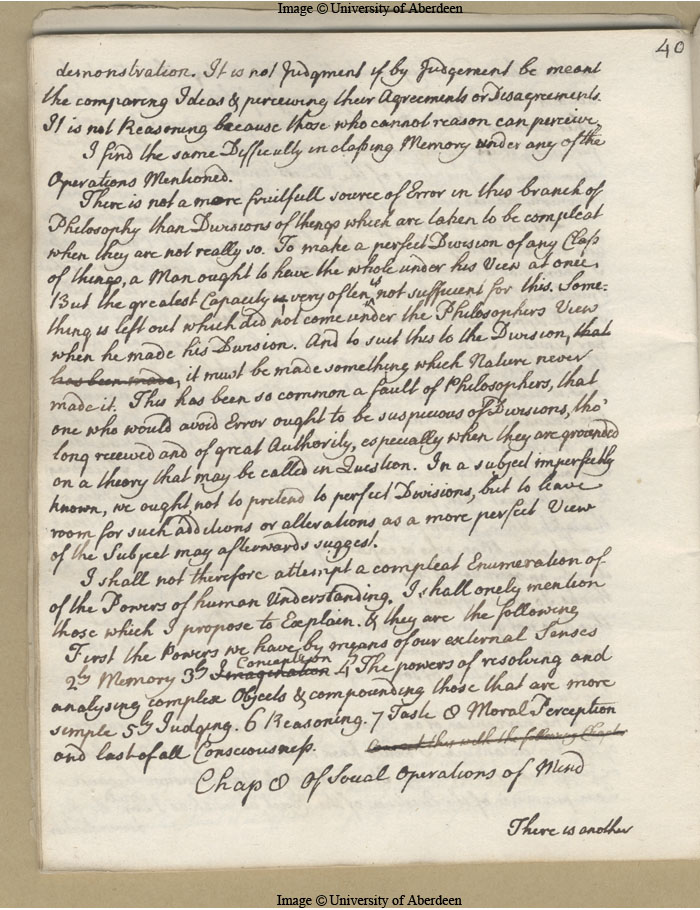 Image © University of Aberdeen
40
demonstration. It is not Judgment if by Judgement be meant
the comparing Ideas & perceiving their Agreements or Disagreements.
It is not Reasoning because those who cannot reason can perceive.
I find the same Difficulty in classing Memory under any of the
Operations Mentioned.
There is not a more fruitfull source of Error in this branch of
Philosophy than Divisions of things which are taken to be compleat
when they are not really so. To make a perfect Division of any Class
of things, a Man ought to have the whole under his View at once.
But the greatest Capacity is very often is not sufficient for this. Some=
thing is left out which did not come under the Philosophers View
when he made his Division. And to suit this to the Division, that
has been made, it must be made something which Nature never
made it. This has been so common a fault of Philosophers, that
one who would avoid Error ought to be suspicious of Divisions, tho'
long received and of great Authority, especially when they are grounded
on a theory that may be called in Question. In a subject imperfectly
known, we ought not to pretend to perfect Divisions, but to leave
room for such additions or alterations as a more perfect View
of the Subject may afterwards suggest.
I shall not therefore attempt a compleat Enumeration of
of the Powers of human Understanding. I shall onely mention
those which I propose to Explain. & they are the following
First the Powers we have by means of our external Senses
2ly Memory 3ly Imagination Conception 4ly The powers of resolving and
analysing complex Objects & compounding those that are more
simple 5ly Judging. 6 Reasoning. 7 Taste 8 Moral Perception
and last of all Consciousness. Connect this with the following Chapter
Chap 8 Of Social Operations of Mind
There is another
Image © University of Aberdeen